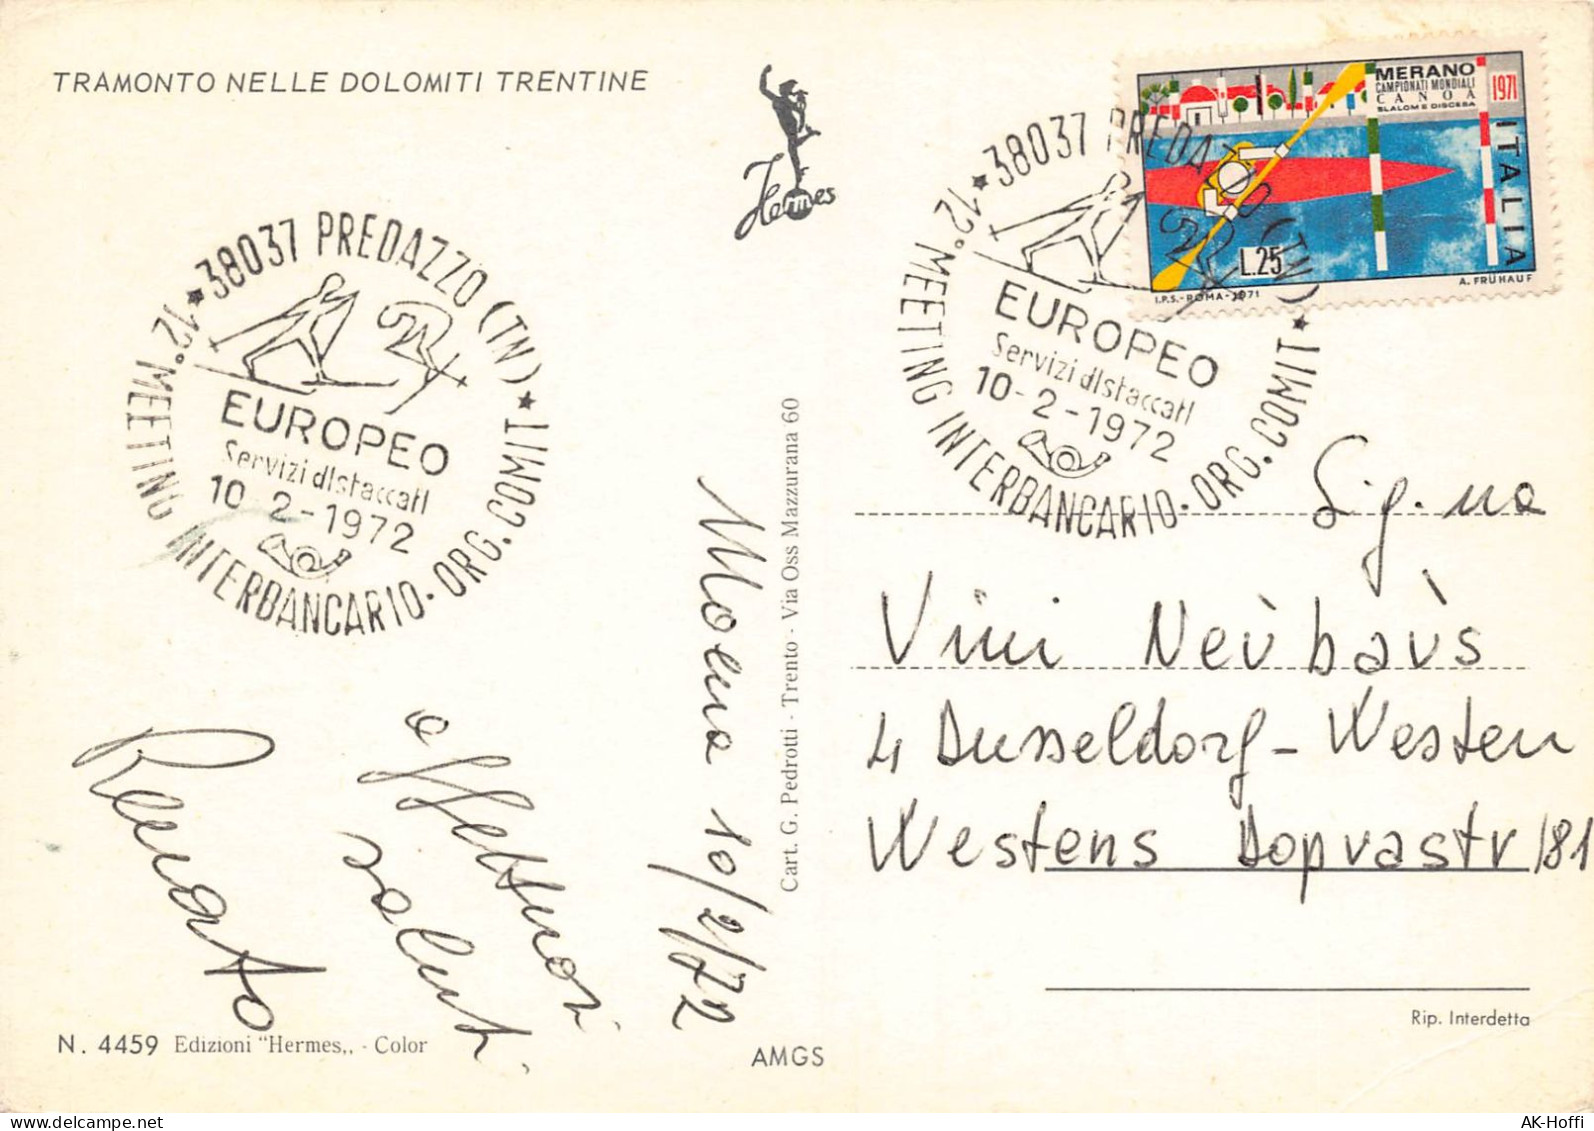 TRAMONTO NELLE DOLOMITI TRENTINE
Hermes
MERANO
CAMPIONATI MONDIALI
CANOA
SLALOM E DISCESA
1971
ITALIA
L.25
I.P.S.-ROMA-1971
A. FRÜHAUF
★ 38037 PREDAZZO (TN) ★
12° MEETING INTERBANCARIO · ORG. COMIT
EUROPEO
Servizi distaccati
10-2-1972
★ 38037 PREDAZZO (TN) ★
12° MEETING INTERBANCARIO · ORG. COMIT
EUROPEO
Servizi distaccati
10-2-1972
Moena 10/2/72
affettuosi
saluti
Renato
Cart. G. Pedrotti - Trento - Via Oss Mazzurana 60
Sig.na
Vini Neùbaùs
4 Dusseldorf - Westen
Westens Dopvastr 181
N. 4459 Edizioni "Hermes,, - Color
AMGS
Rip. Interdetta
AK-Hoffi